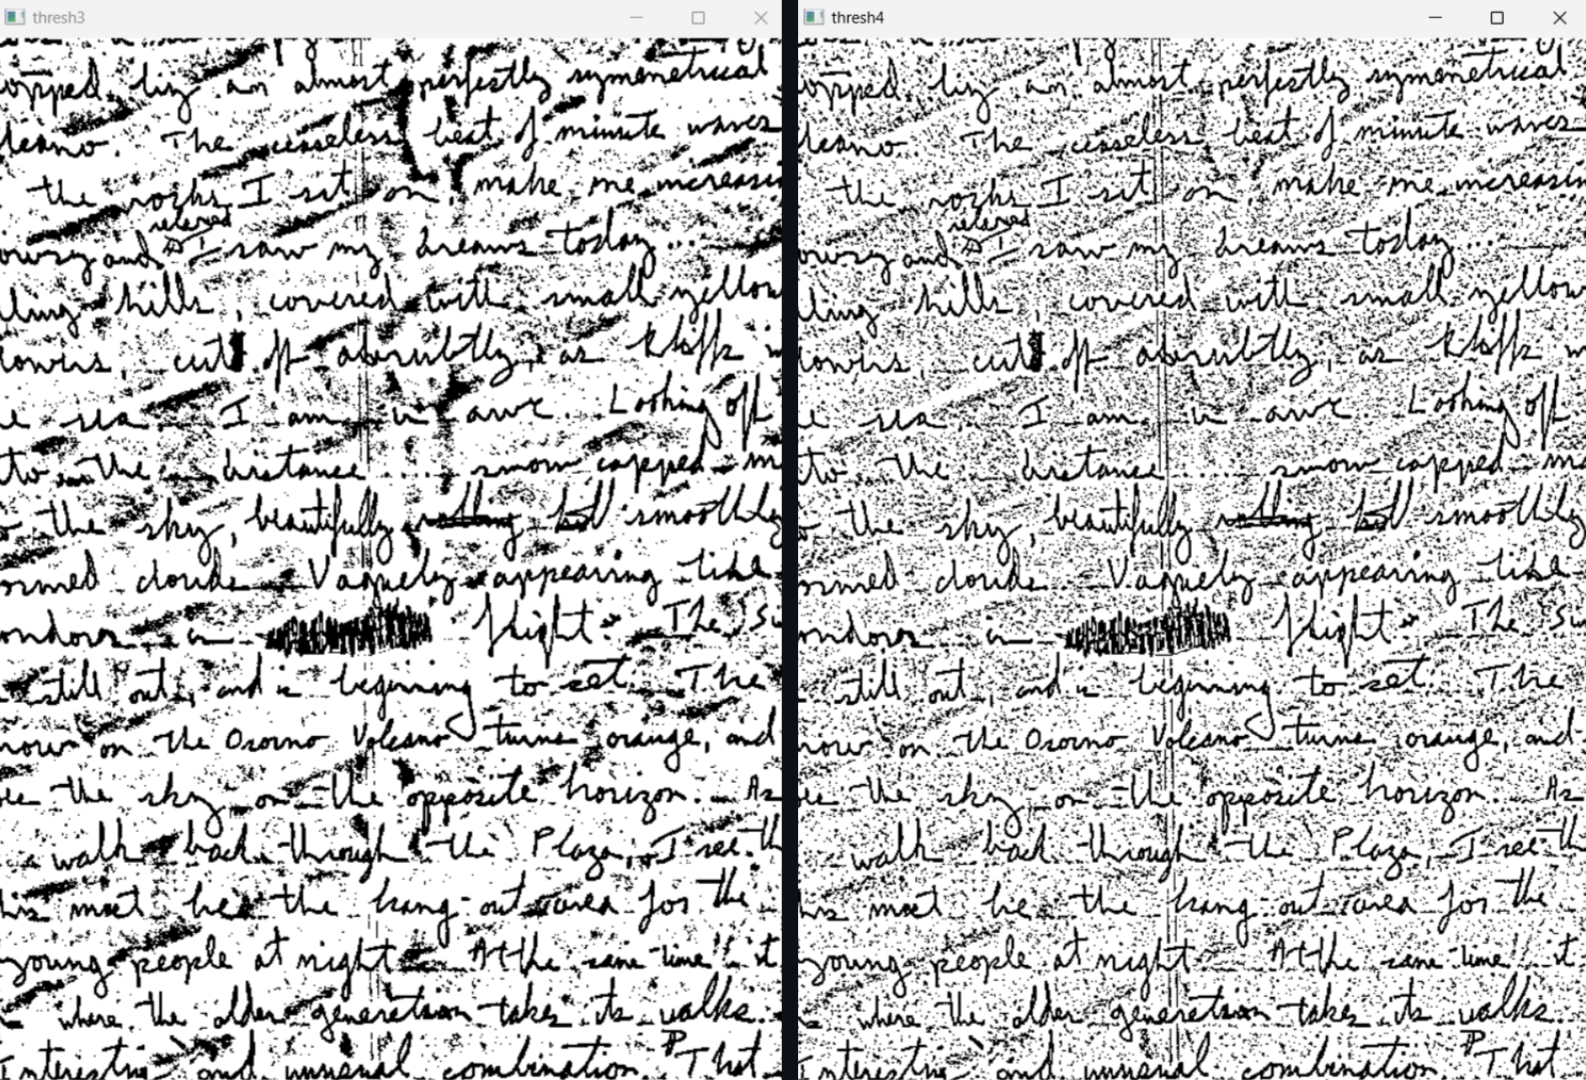 thresh3
opped by an almost perfectly symmetrical
lcano. The ceaseless beat of minute waves
the rocks I sit on, make me increasin
owsy and relaxed I saw my dreams today...
lling hills, covered with small yellow
lowers, cut off abruptly, as kliffs in
e sea I am in awe. Looking off
to the distance .... snow capped m
the sky, beautifully smoothly
ormed clouds. Vaguely appearing like
ondors in flight. The su
still out, and is beginning to set. The
now on the Osorno Volcano turns orange, and
the sky on the opposite horizon. As
walk back through the Plaza, I see th
his must be the hang-out area for the
young people at night. At the same time it
where the older generation takes its walks.
Interesting and unusual combination. That
thresh4
opped by an almost perfectly symmetrical
lcano. The ceaseless beat of minute waves
the rocks I sit on, make me increasin
owsy and relaxed I saw my dreams today...
lling hills, covered with small yellow
lowers, cut off abruptly, as kliffs in
e sea I am in awe. Looking off
to the distance .... snow capped m
the sky, beautifully smoothly
ormed clouds. Vaguely appearing like
ondors in flight. The su
still out, and is beginning to set. The
now on the Osorno Volcano turns orange, and
the sky on the opposite horizon. As
walk back through the Plaza, I see th
his must be the hang-out area for the
young people at night. At the same time it
where the older generation takes its walks.
Interesting and unusual combination. That